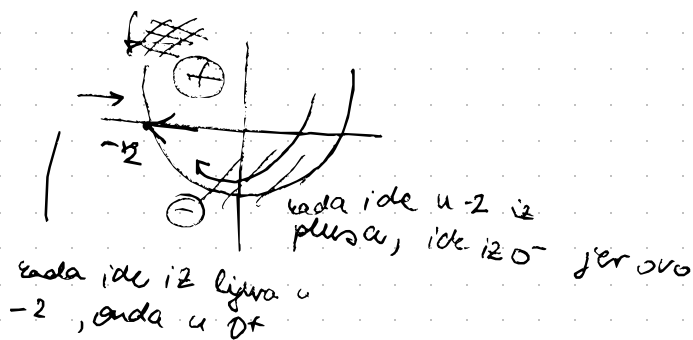 +
-2
-
kada ide u -2 iz
plusa, ide iz 0⁻ jer ovo
kada ide iz lijeva u
-2, onda u 0⁺